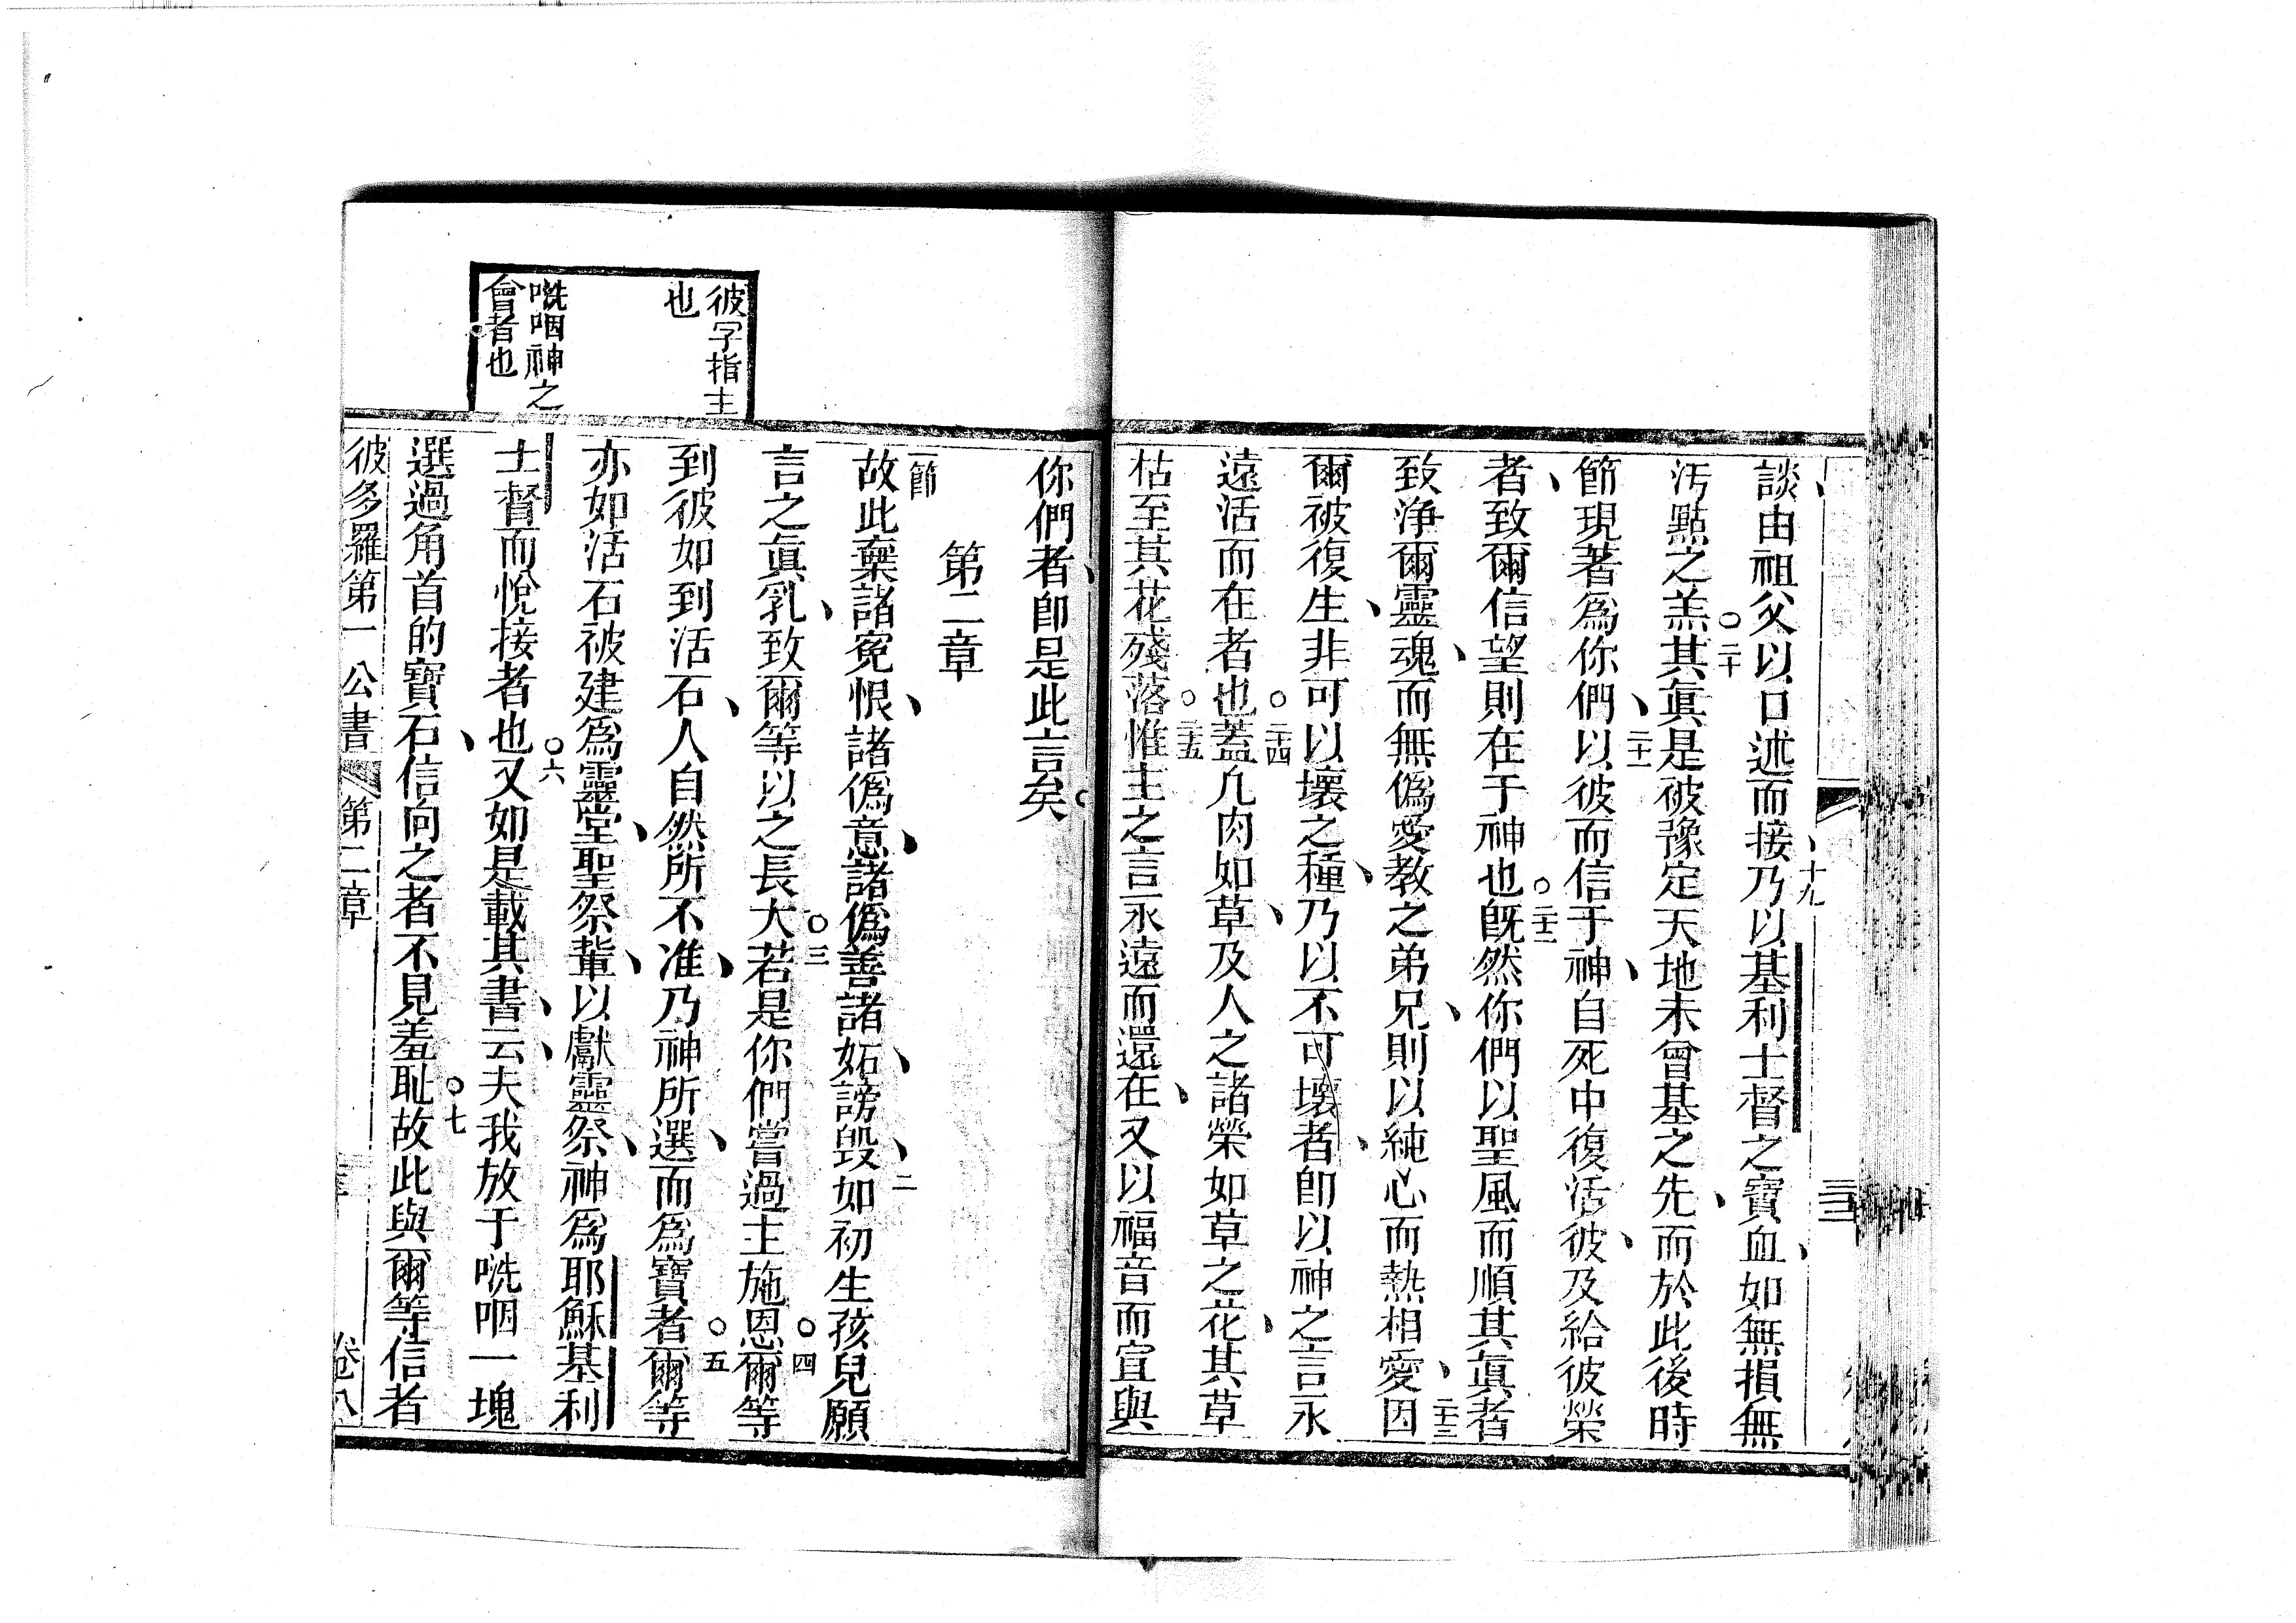 談由祖父以口述而接乃以基利士督之寶血如無損無
十九
汚點之羔其眞是被豫定天地未曾基之先而於此後時
二十
節現著爲你們以彼而信于神自死中復活彼及給彼榮
二十一
者致爾信望則在于神也旣然你們以聖風而順其眞者
二十二
致淨爾靈魂而無僞愛教之弟兄則以純心而熱相愛因
二十三
爾被復生非可以壞之種乃以不可壞者卽以神之言永
遠活而在者也蓋凡肉如草及人之諸榮如草之花其草
二十四
枯至其花殘落惟主之言永遠而還在又以福音而宣與
二十五
你們者卽是此言矣
第二章
一節
故此棄諸寃恨諸僞意諸僞善諸妬謗毀如初生孩兒願
二
言之眞乳致爾等以之長大若是你們嘗過主施恩爾等
三
四
到彼如到活石人自然所不准乃神所選而爲寶者爾等
五
亦如活石被建爲靈堂聖祭輩以獻靈祭神爲耶穌基利
士督而悅接者也又如是載其書云夫我放于㖢咽一塊
六
選過角首的寶石信向之者不見羞恥故此與爾等信者
七
彼字指主
也
㖢咽神之
會者也
彼多羅第一公書 第二章 卷八